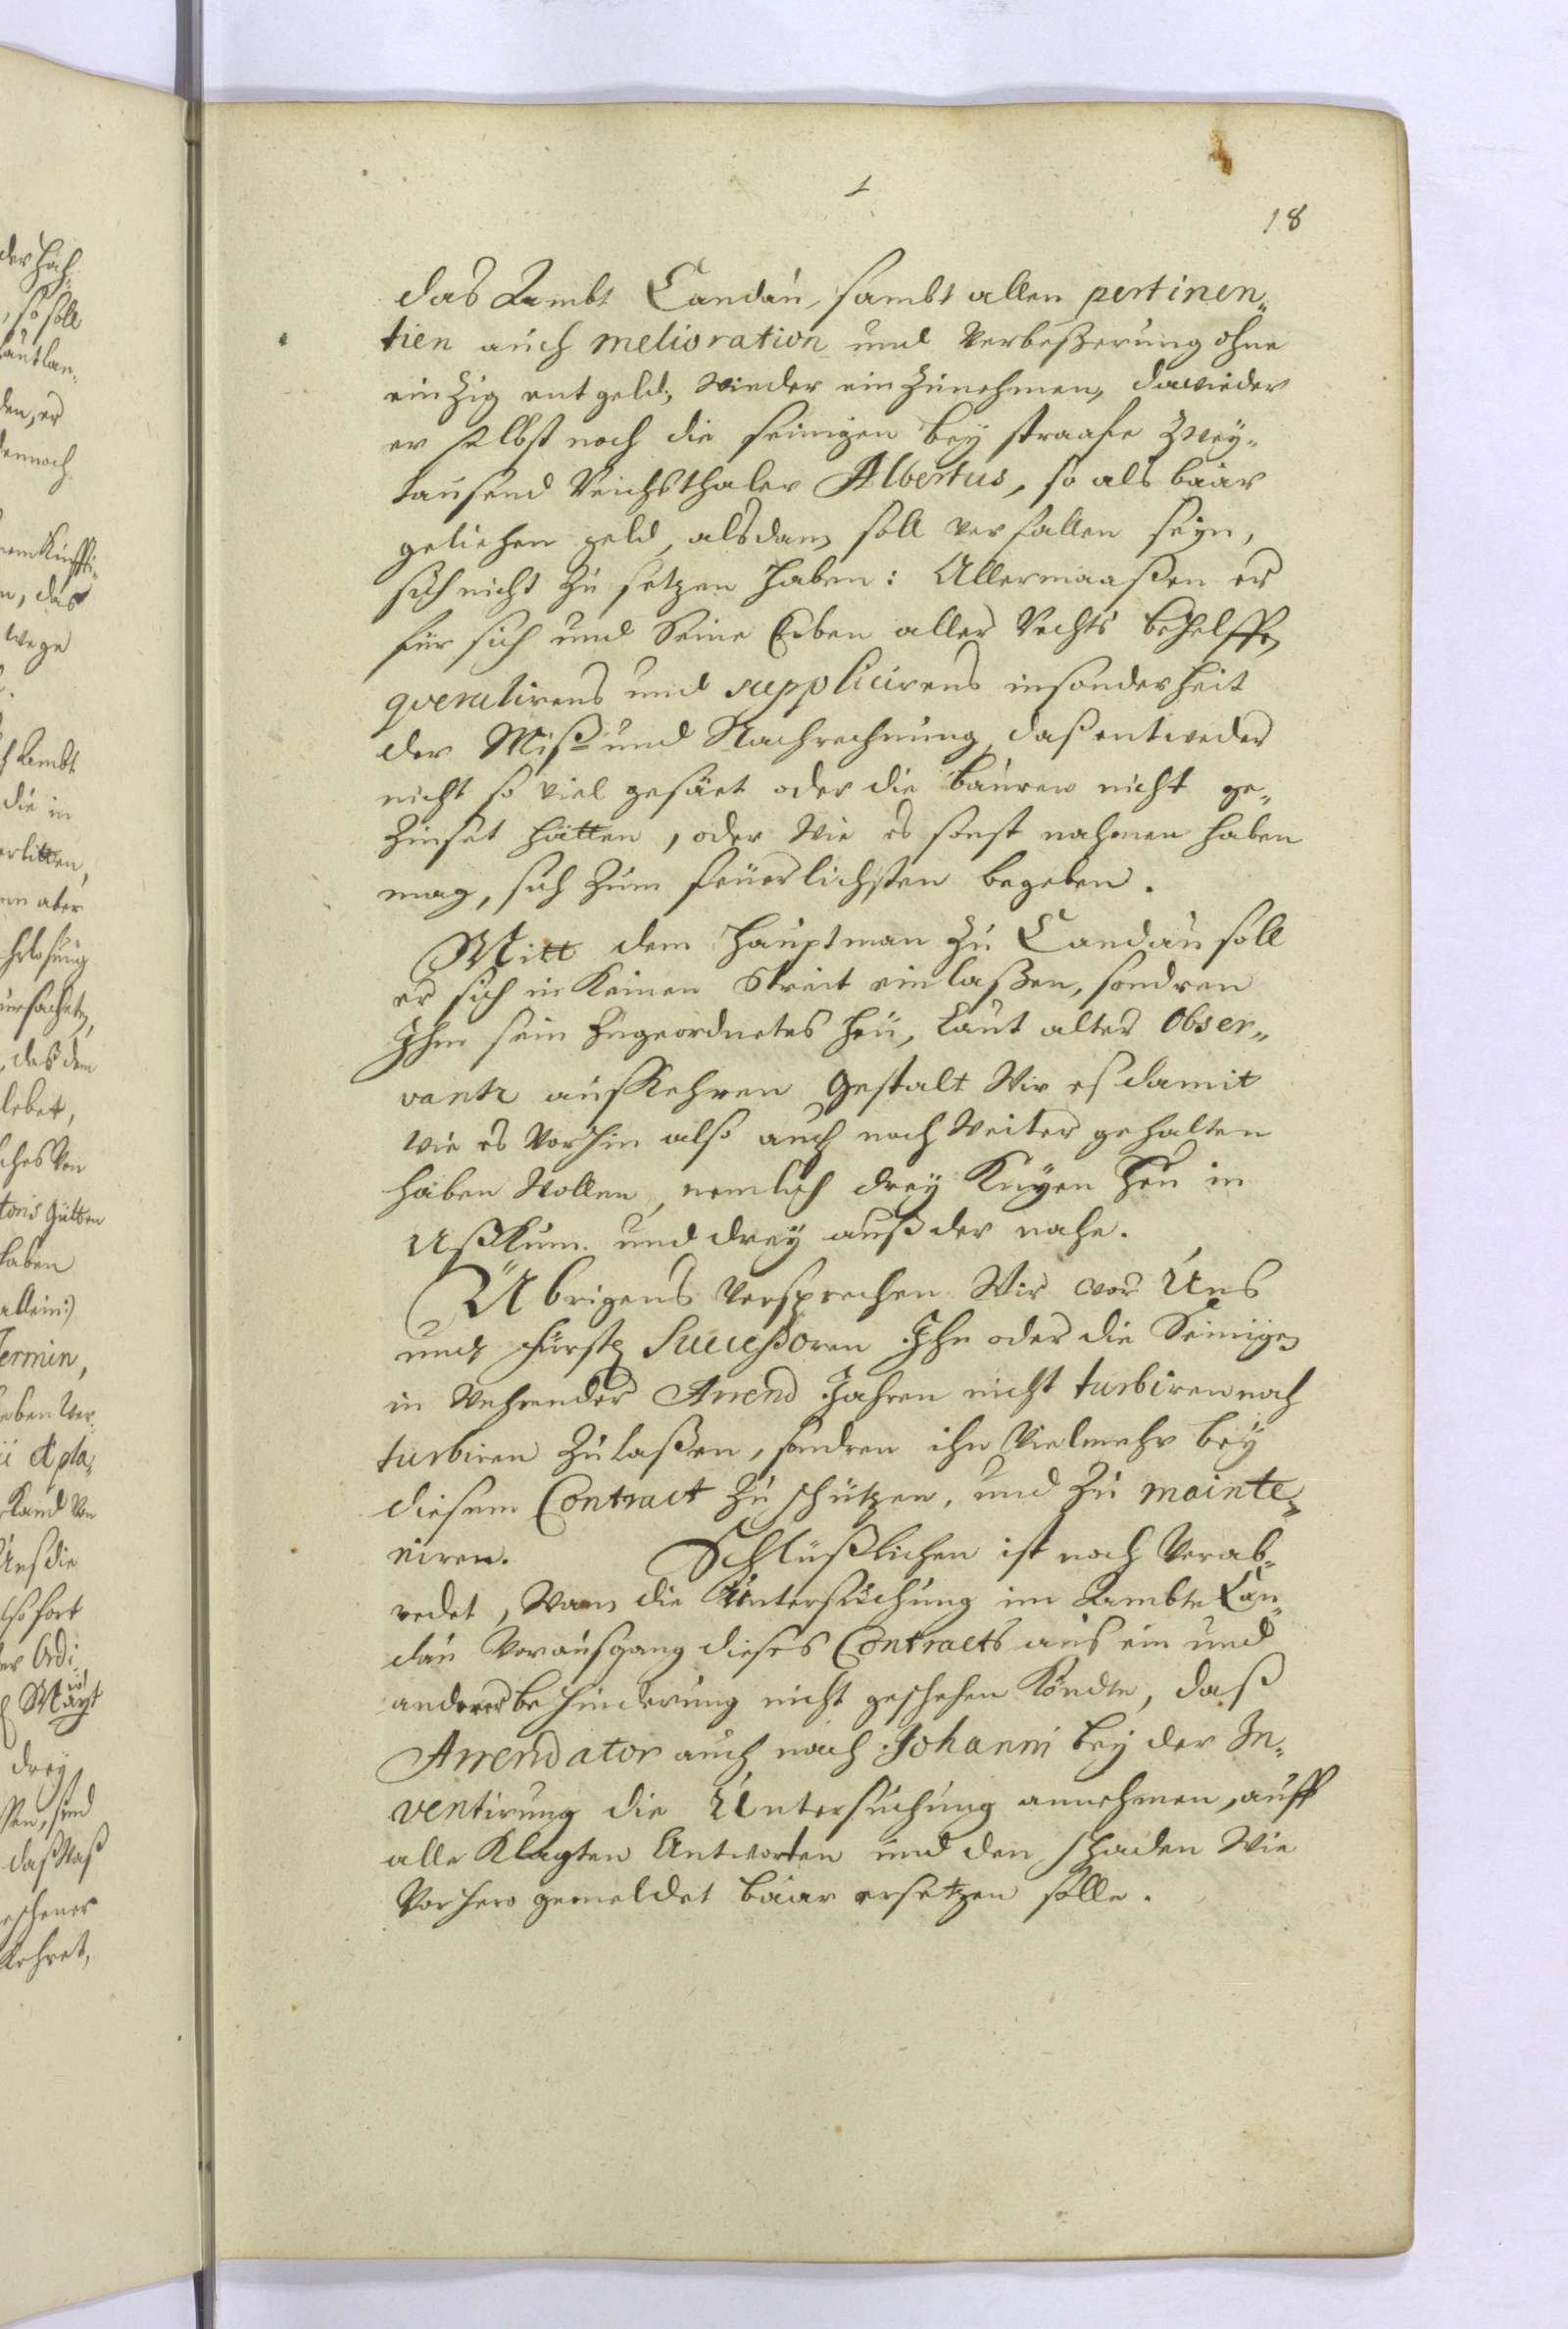 18
das Ambt Candau, sambt allen pertinen„
tien auch melioration und Verbeßerung ohne
einzig entgeld, Wieder einzunehmen, dawieder
er selbst noch die seinigen bey straafe Zwey„
tausend Reichsthaler Albertus, so als baar
geliehen geld, alsdann soll verfallen seyn,
sich nicht zu setzen haben: Allermaaßen er
für sich und Seine Erben aller Rechts behelffen
querulirens und supplicirens insonderheit
der Miß und Nachrechnung, daß entweder
nicht so viel gesäet oder die bauren nicht ge„
Zinset hätten, oder Wie es sonst nahmen haben
mag, sich zum feüerlichsten begeben.
Mitt dem Hauptman zu Candau soll
er sich in keinen Streit einlaßen, sondren
Ihm sein zugeordnetes Heü, Laut alter Obser„
vantz auskehren gestalt Wir es damit
wie es Vorhin also auch noch Weiter gehalten
haben Wollen, nemlich drey Kuyen Heu in
Ußkum. und drey auß der nahe.
Übrigens Versprechen Wir vor Uns
und fürstl Successoren Ihn oder die Seinigen
in Wehrender Arrend Jahren nicht turbiren noch
turbiren zulaßen, sondren ihn Vielmehr bey
diesem Contract zu schützen, und zu mainte„
niren. Schlüßlichen ist noch Verab„
redet, Wann die Untersuchung im Ambte Can„
dau Vor ausgang dieses Contracts aus ein und
anderer behinderung nicht geschehen Köndte, daß
Arrendator auch nach Johanni bey der In„
ventirung die Untersuchung annehmen, auff
alle Klagten Antworten und den schaden Wie
Vorhero gemeldet baar ersetzen solle.